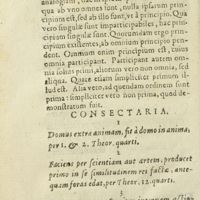 analogiam, hac
qua ab vno omnes sunt, nulla ipsarum prin-
cipium est, sed ab illo sunt, vt à principio. Quin
vero singulæ sunt imparticipabiles, hac prin-
cipia singulæ sunt. Quorumdam ergo prin-
cipium existentes, ab omnium principio pen-
dent. Omnium enim principium est, cuius
omnia participant. Participant autem om-
nia solius primi, aliorum vero non omnia, sed
alia. Quare etiam simpliciter primum
illud est. Reliqua vero ad aliud ordinem sunt
prima: simpliciter vero non prima, quod de-
monstratum fuit.
CONSECTARIA.
1
Domus extra animam, fit à domo in anima,
per 1. & 2. Theor. quarti.
2
Faciens per scientiam aut artem, producet
primo in se similitudinem rei factæ, ante-
quam foras edat, per Theor. 12. quarti.
3